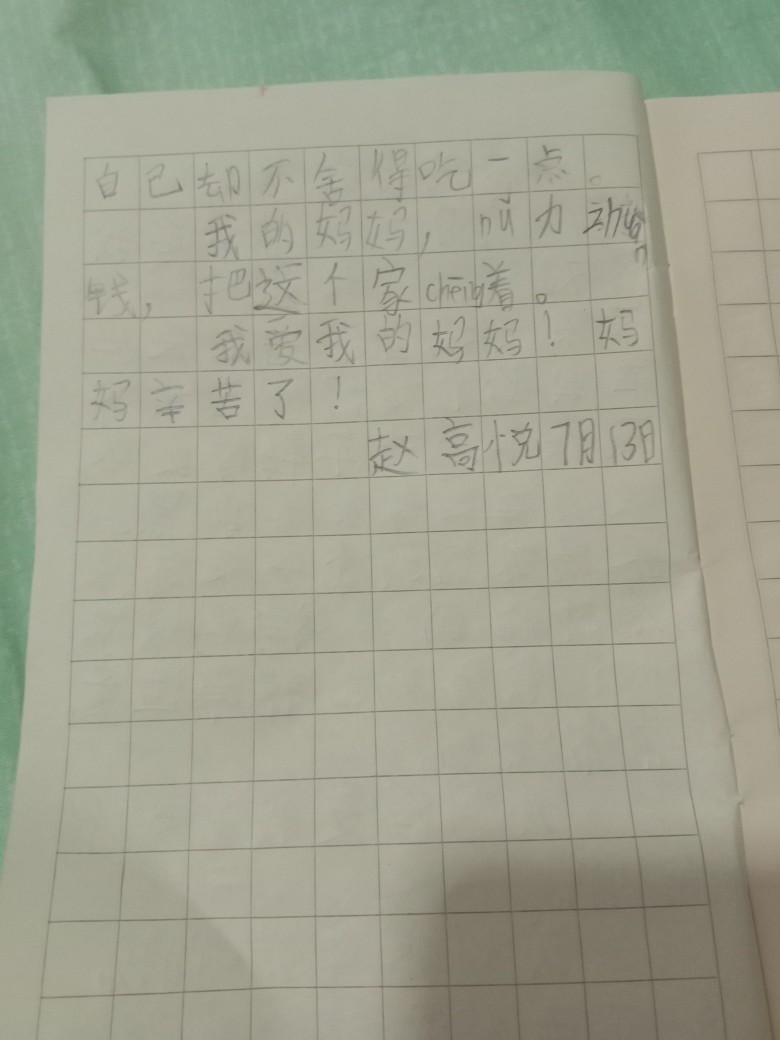 自己却不舍得吃一点。
我的妈妈，nǔ力
钱，把这个家chēng着。
我爱我的妈妈！妈
妈辛苦了！
赵高悦7月13日